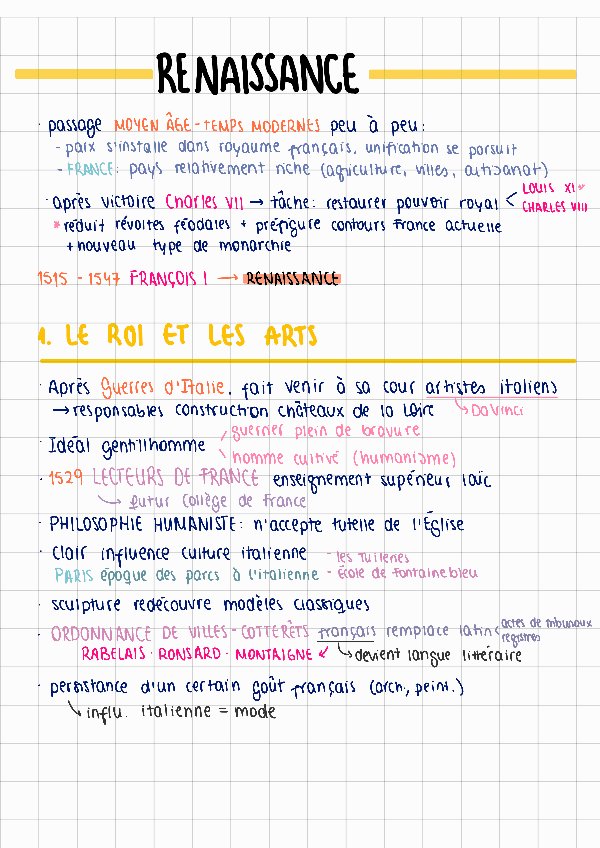 RENAISSANCE
· passage MOYEN ÂGE-TEMPS MODERNES peu à peu:
- paix s'installe dans royaume français, unification se porsuit
- FRANCE: pays relativement riche (agriculture, villes, artisanat)
· après victoire Charles VII → tâche: restaurer pouvoir royal < LOUIS XI*
CHARLES VIII
* réduit révoltes féodales + préfigure contours France actuelle
+ nouveau type de monarchie
1515 - 1547 FRANÇOIS I → RENAISSANCE
1. LE ROI ET LES ARTS
· Après Guerres d'Italie, fait venir à sa cour artistes italiens
→ responsables construction châteaux de la Loire ↳ Da Vinci
· Idéal gentilhomme / guerrier plein de bravure
\ homme cultivé (humanisme)
· 1529 LECTEURS DE FRANCE enseignement supérieur laïc
↳ futur Collège de France
· PHILOSOPHIE HUMANISTE: n'accepte tutelle de l'Église
· Clair influence culture italienne - les Tuileries
PARIS époque des parcs à l'italienne - École de Fontainebleu
· sculpture redécouvre modèles classiques
· ORDONNANCE DE VILLES-COTTERÊTS français remplace latin < actes de tribunaux
registres
RABELAIS · RONSARD · MONTAIGNE ↙ ↳ devient langue littéraire
· persistance d'un certain goût français (arch., peint.)
↳ influ. italienne = mode